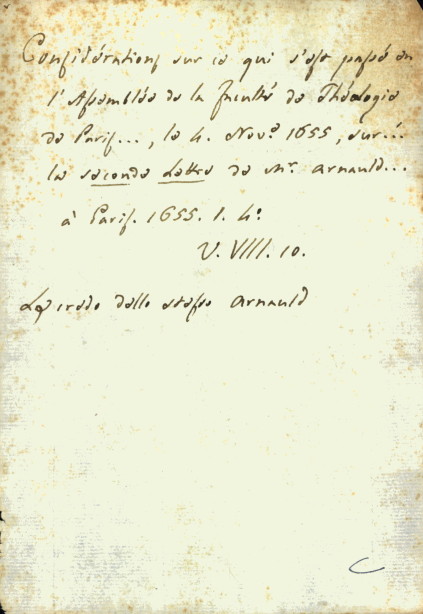 Considérations sur ce qui s'est passé en
l'Assemblée de la Faculté de Théologie
de Paris..., le 4. Nov.e 1655, sur...
la seconde Lettre de Mr. Arnauld...
à Paris. 1655. 1. 4o.
V. VIII. 10.
La credo dello stesso Arnauld